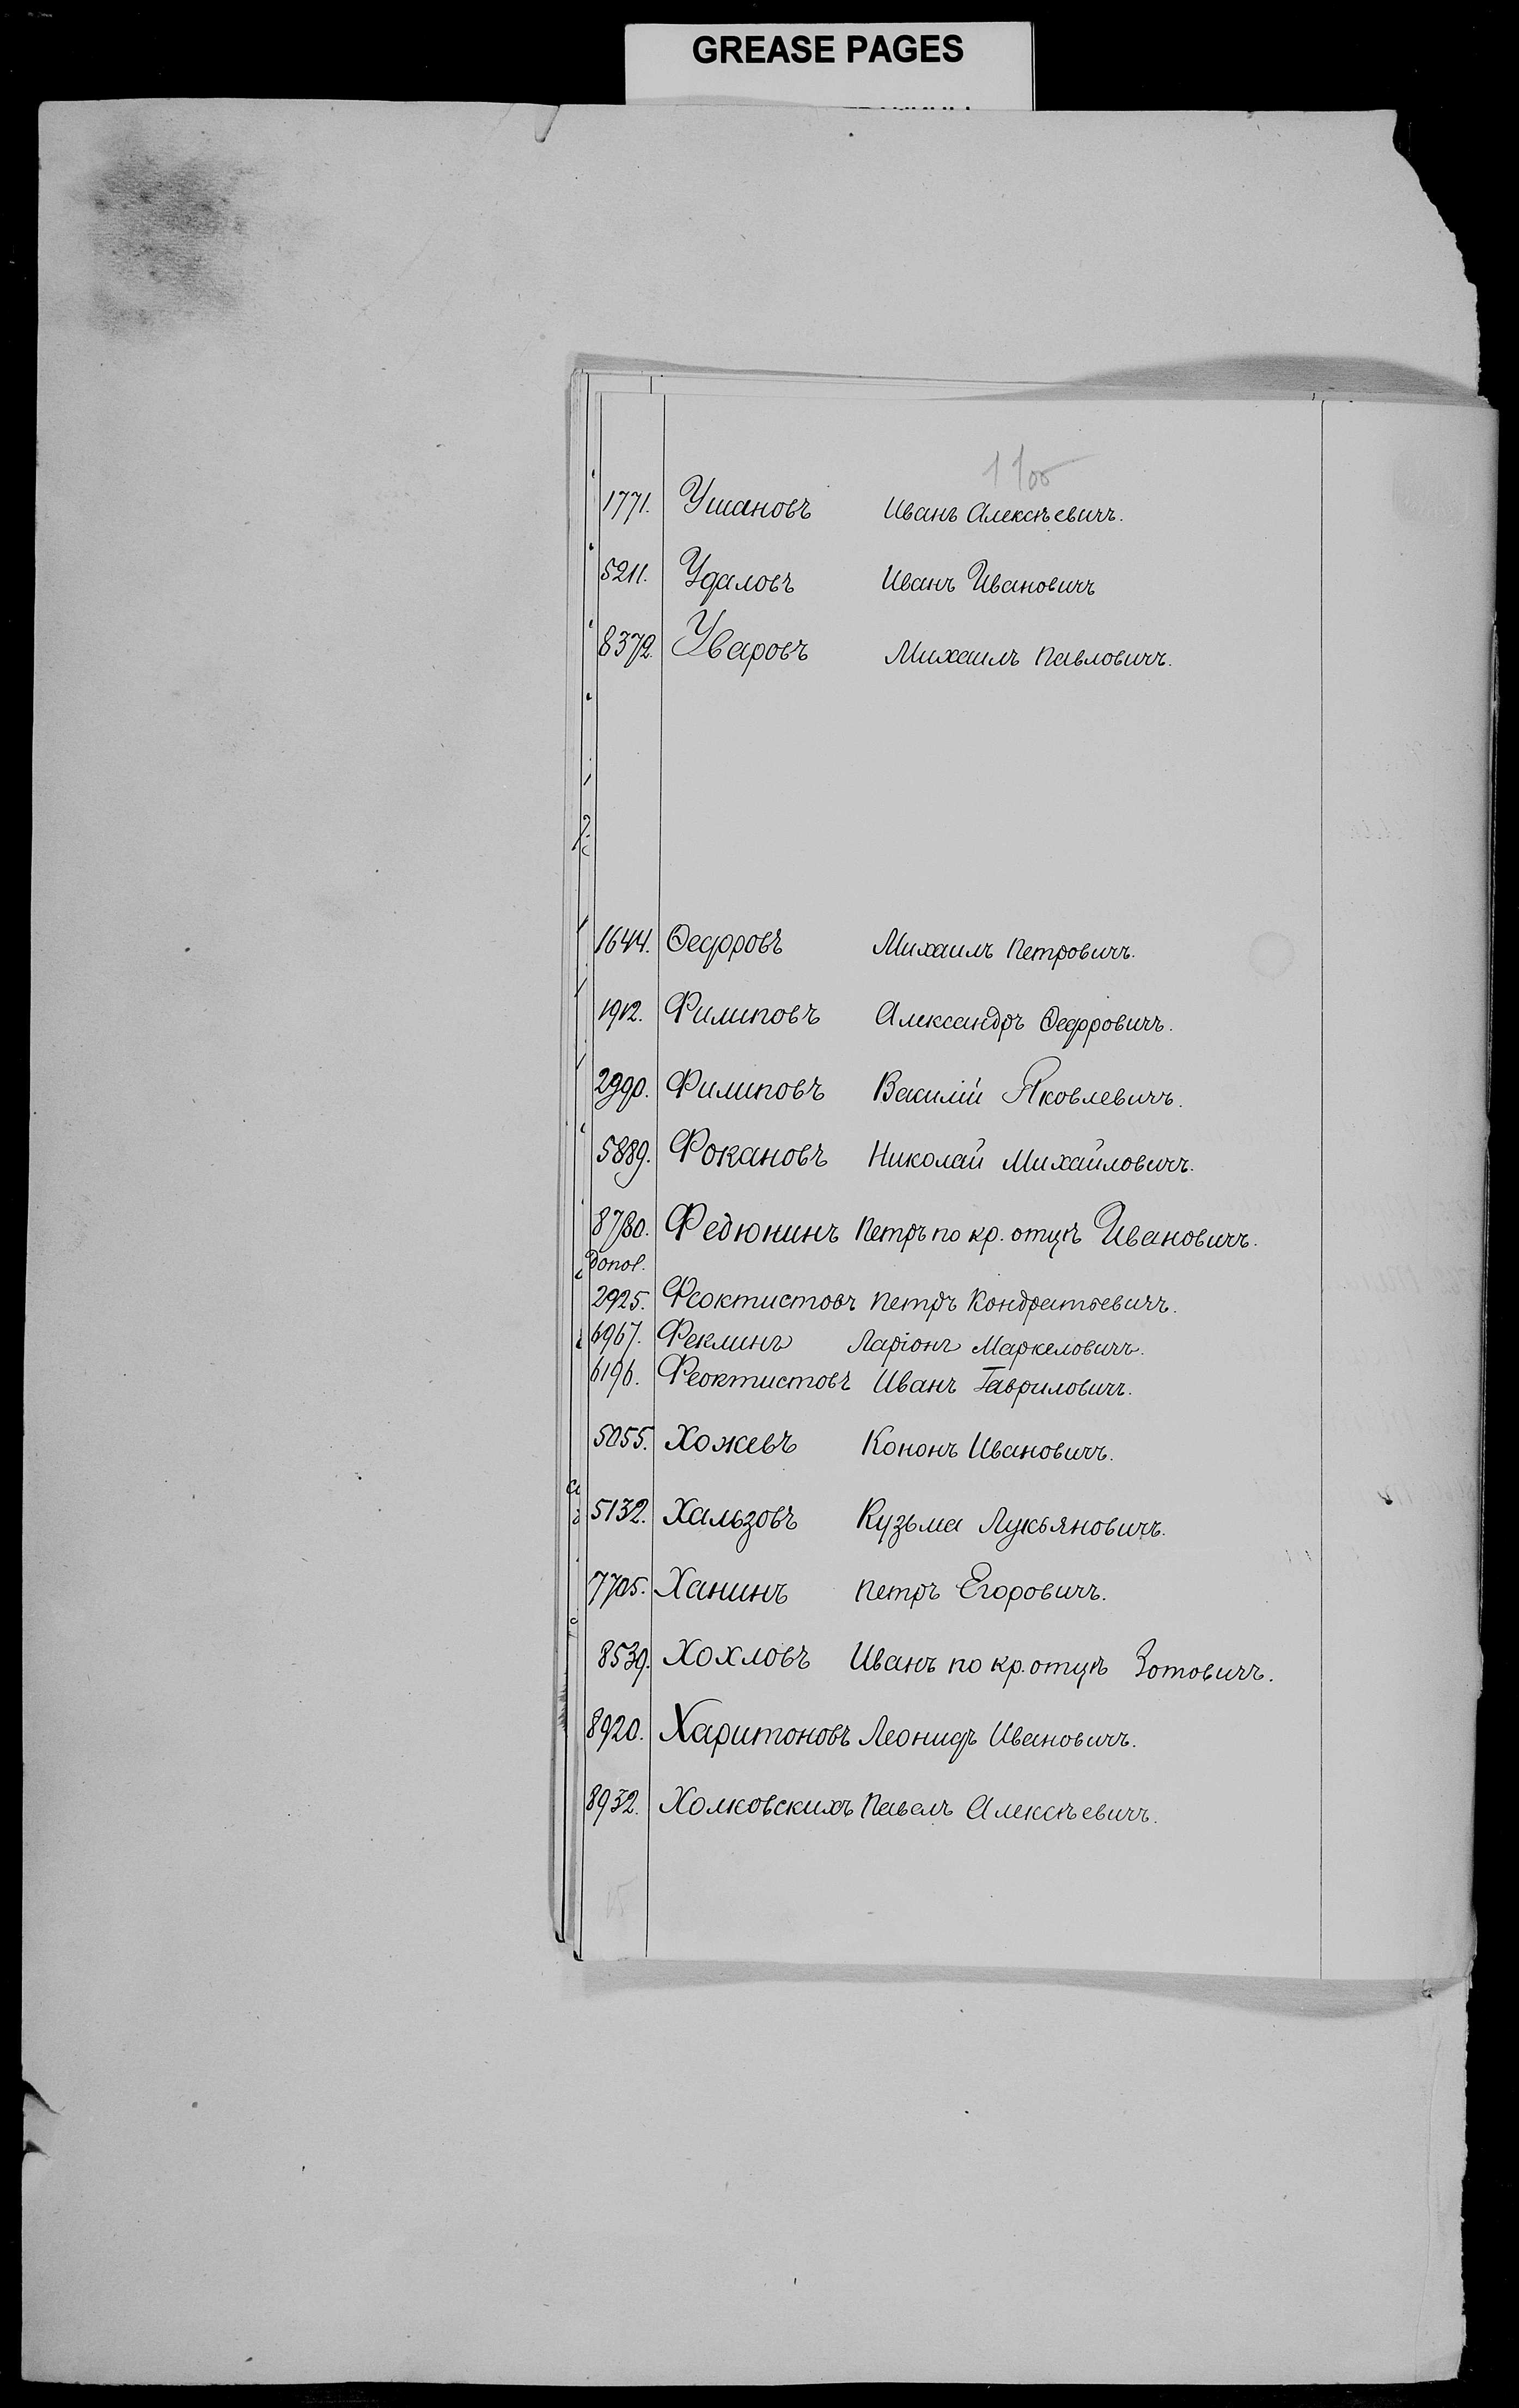 GREASE PAGES
1771. Ушановъ Иванъ Алексѣевичъ.
5211. Удаловъ Иванъ Ивановичъ
8372. Уваровъ Михаилъ Павловичъ.
1644. Ѳедоровъ Михаилъ Петровичъ.
1912. Филиповъ Александръ Ѳедоровичъ.
2990. Филиповъ Василій Яковлевичъ.
5889. Фокановъ Николай Михайловичъ.
8780. Федюнинъ Петръ по кр. отцѣ Ивановичъ.
Допол.
2925. Феоктистовъ Петръ Кондратьевичъ.
6967. Феклинъ Ларіонъ Маркеловичъ.
6196. Феоктистовъ Иванъ Гавриловичъ.
5055. Хожевъ Кононъ Ивановичъ.
5132. Хальзовъ Кузьма Лукьяновичъ.
7705. Ханинъ Петръ Егоровичъ.
8539. Хохловъ Иванъ по кр. отцѣ Зотовичъ.
8920. Харитоновъ Леонидъ Ивановичъ.
8932. Холковскихъ Павелъ Алексѣевичъ.